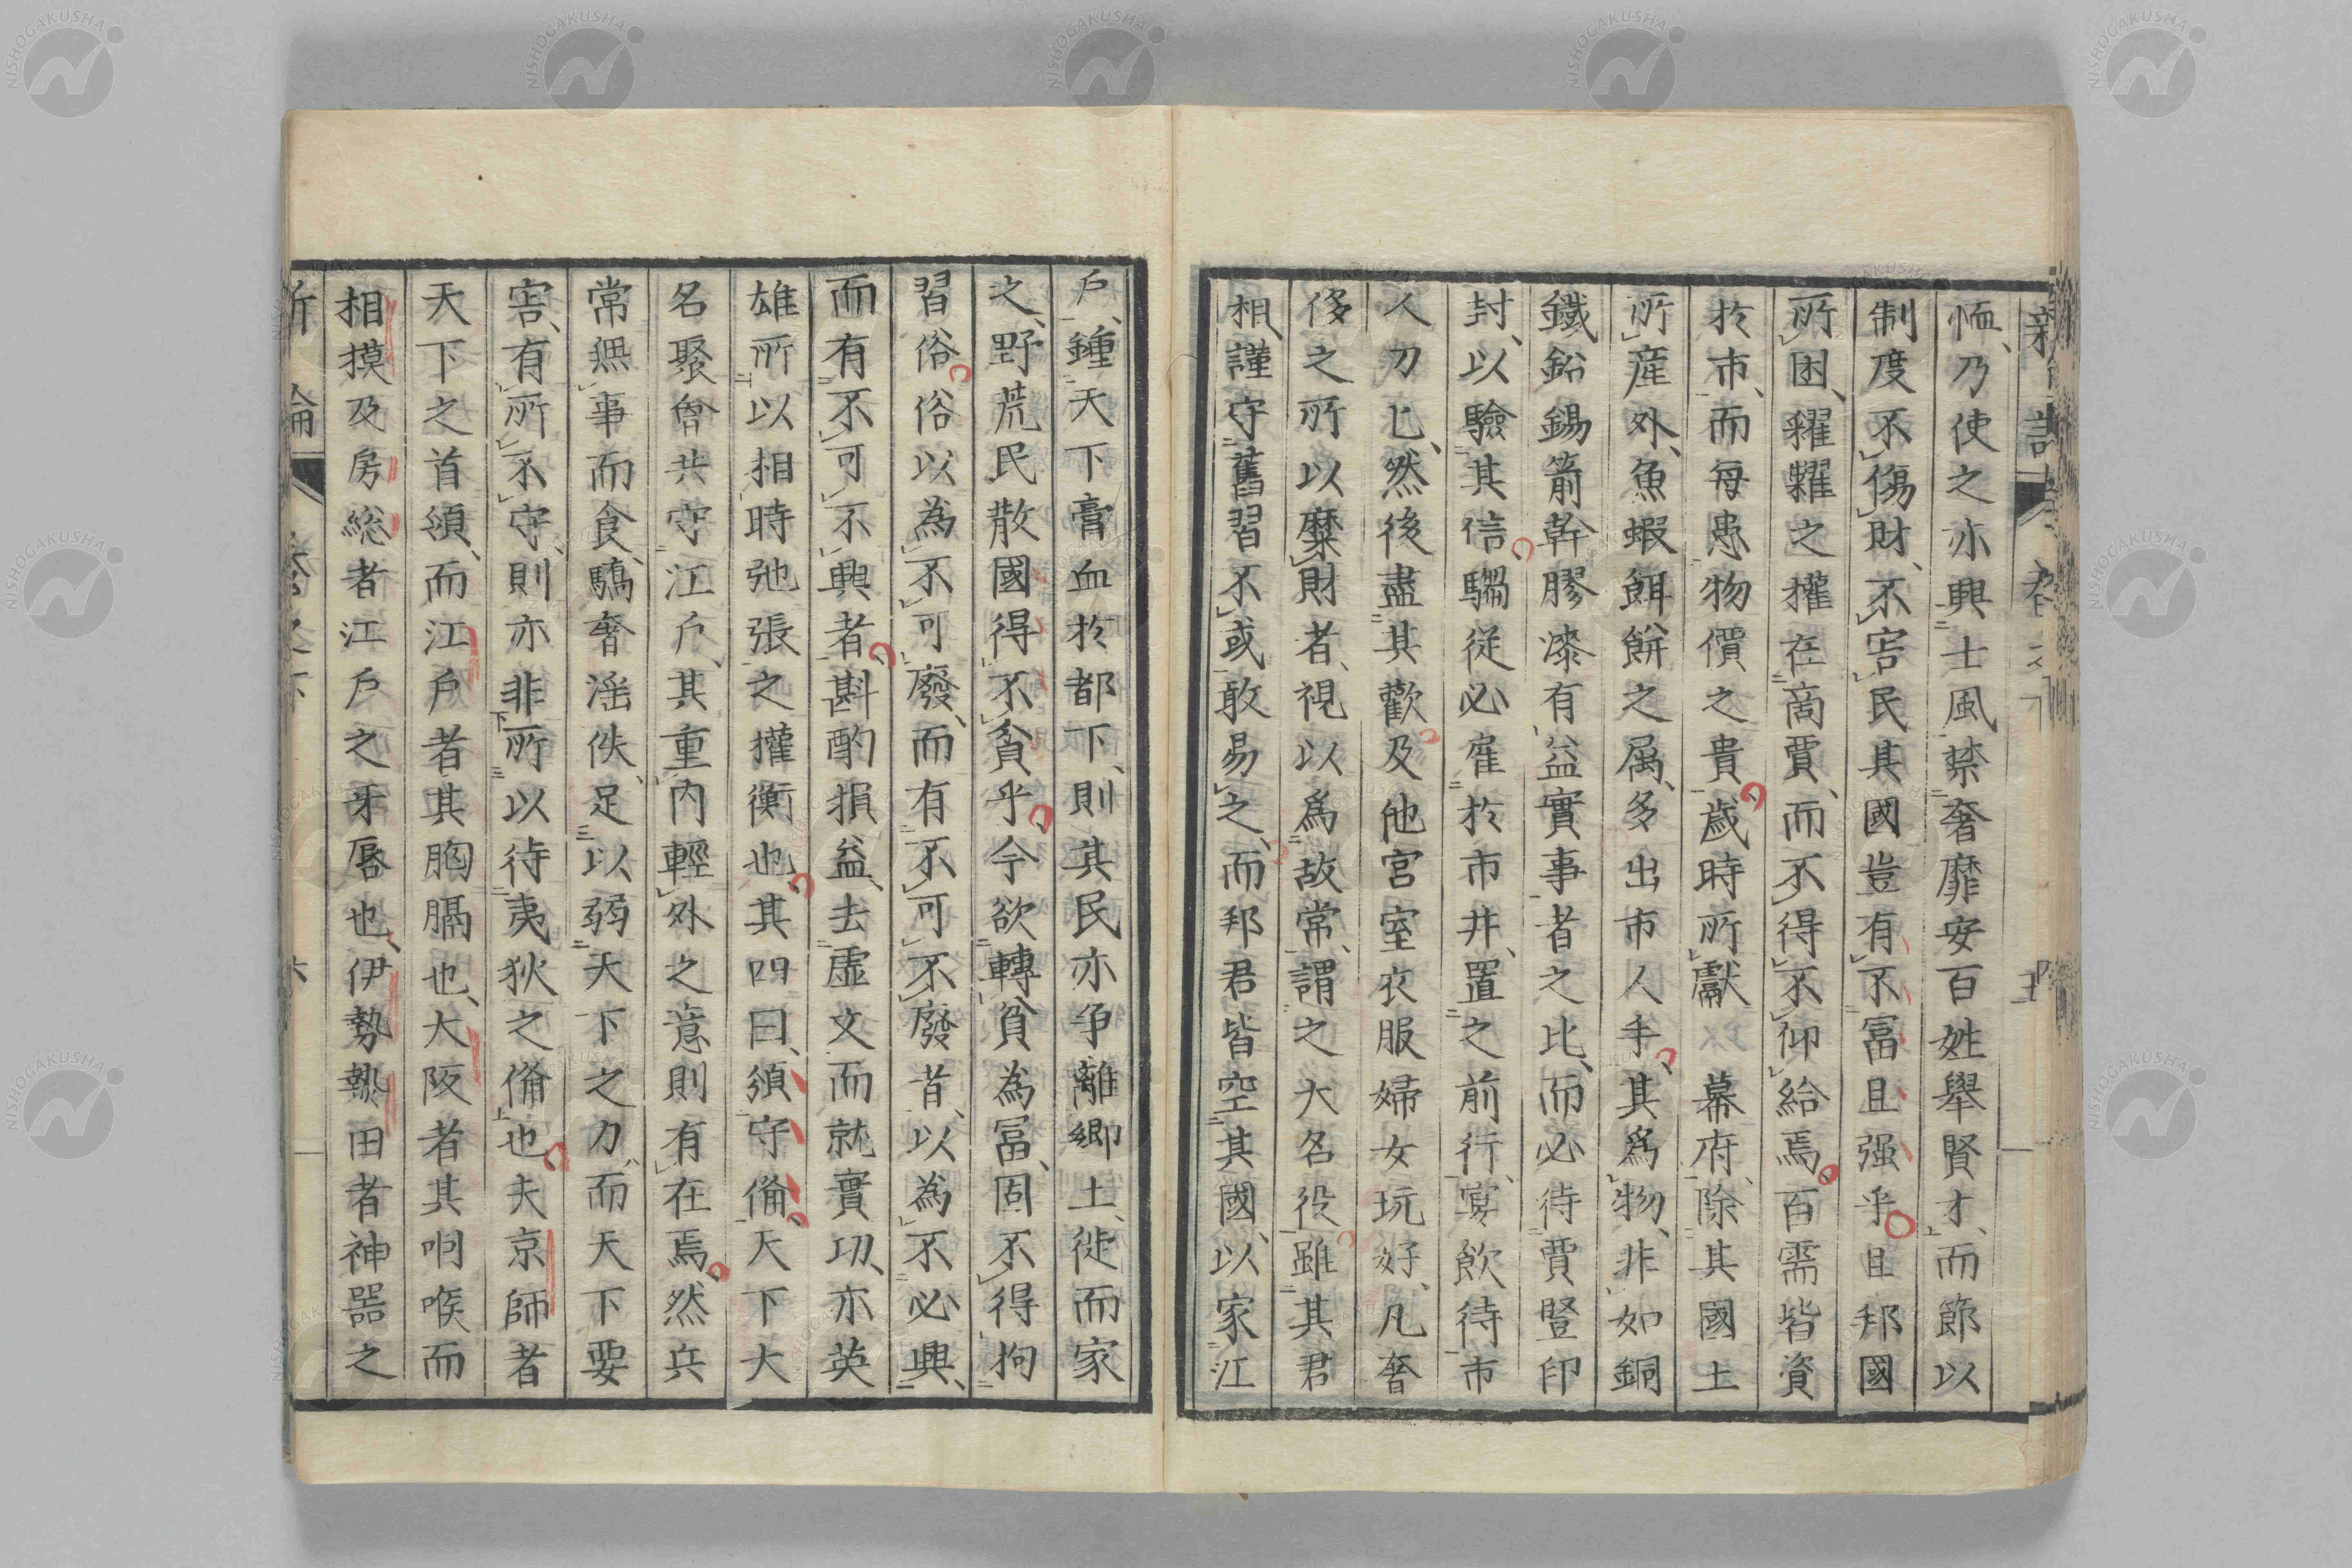 恤、乃使之亦興士風禁奢靡安百姓舉賢才、而節以
制度不傷財、不害民其國豈有不富且强乎且邦國
所困、糴糶之權在商賈、而不得不仰給焉百需皆資
於市、而每患物價之貴歳時所獻以幕府、除其國土
所產外、魚蝦餌餅之属、多出市人手、其爲物、非如銅
鐵鉛錫箭幹膠漆有益實事者之比、而必待賈豎印
封、以驗其信、騶從必雇於市井、置之前行、宴飲待市
人刀匕、然後盡其歡及他宮室衣服婦女玩好、凡奢
侈之所以糜財者、視以爲故常、謂之大名役雖其君
相、謹守舊習不或敢易之、而邦君皆空其國、以家江
戶、鍾天下膏血於都下、則其民亦争離鄉土、徙而家
之、野荒民散國得不貧乎今欲轉貧為冨、固不得拘
習俗俗以為不可廢、而有不可不廢者、以為不必興、
而有不可不興者斟酌損益、去虚文而就實功、亦英
雄所以相時弛張之權衡也其四曰、須守備、天下大
名聚會共守江戶、其重内輕外之意則有在焉然兵
常無事而食、驕奢淫佚、足以弱天下之力、而天下要
害、有所不守、則亦非所以待夷狄之備也夫京師者
天下之首領、而江戶者其胸膈也、大阪者其咽喉而
相摸及房総者江戶之牙唇也、伊勢熱田者神器之